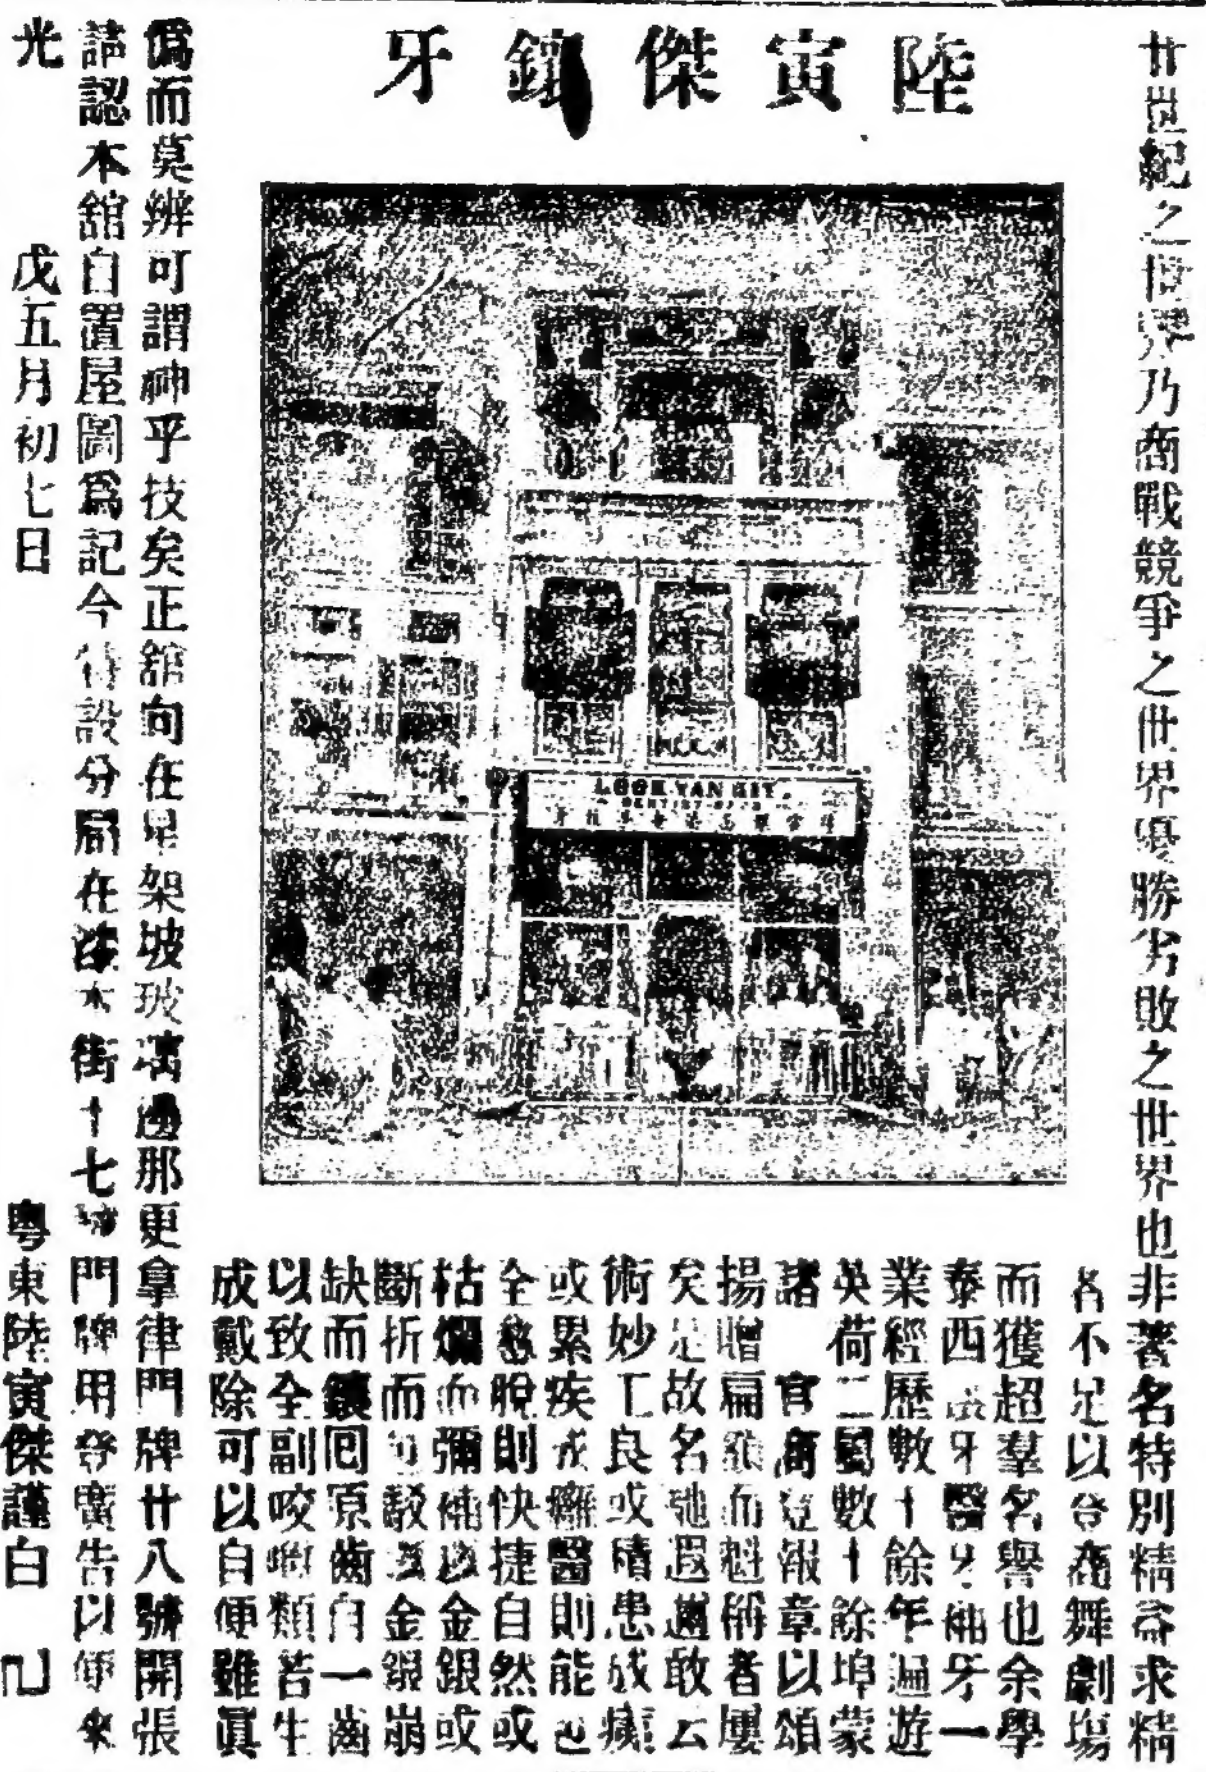 陸寅傑鑲牙
廿世紀之世界乃商戰競爭之世界優勝劣敗之世界也非著名特別精益求精
者不足以登商舞劇場
而獲超羣名譽也余學
泰西牙醫補牙一
業經歷數十餘年遍遊
英荷二屬數十餘埠蒙
諸 官商登報章以頌
揚贈扁額而魁稱者屢
矣足故名馳遐邇敢云
術妙工良或積患成癥
或累疾求醫則能包
全愈脫則快捷自然或
枯爛而彌補以金銀或
斷折而駁以金銀崩
缺而鑲囘原齒自一齒
以致全副咬嚼類若生
成戴除可以自便雖眞
LOOK YAN KIT
DENTIST
僞而莫辨可謂神乎技矣正舘向在星架坡玻璃邊那更拿律門牌廿八號開張
請認本舘自置屋圖爲記今特設分局在水街十七號門牌用登廣告以便來
光 戊五月初七日 粤東陸寅傑謹白